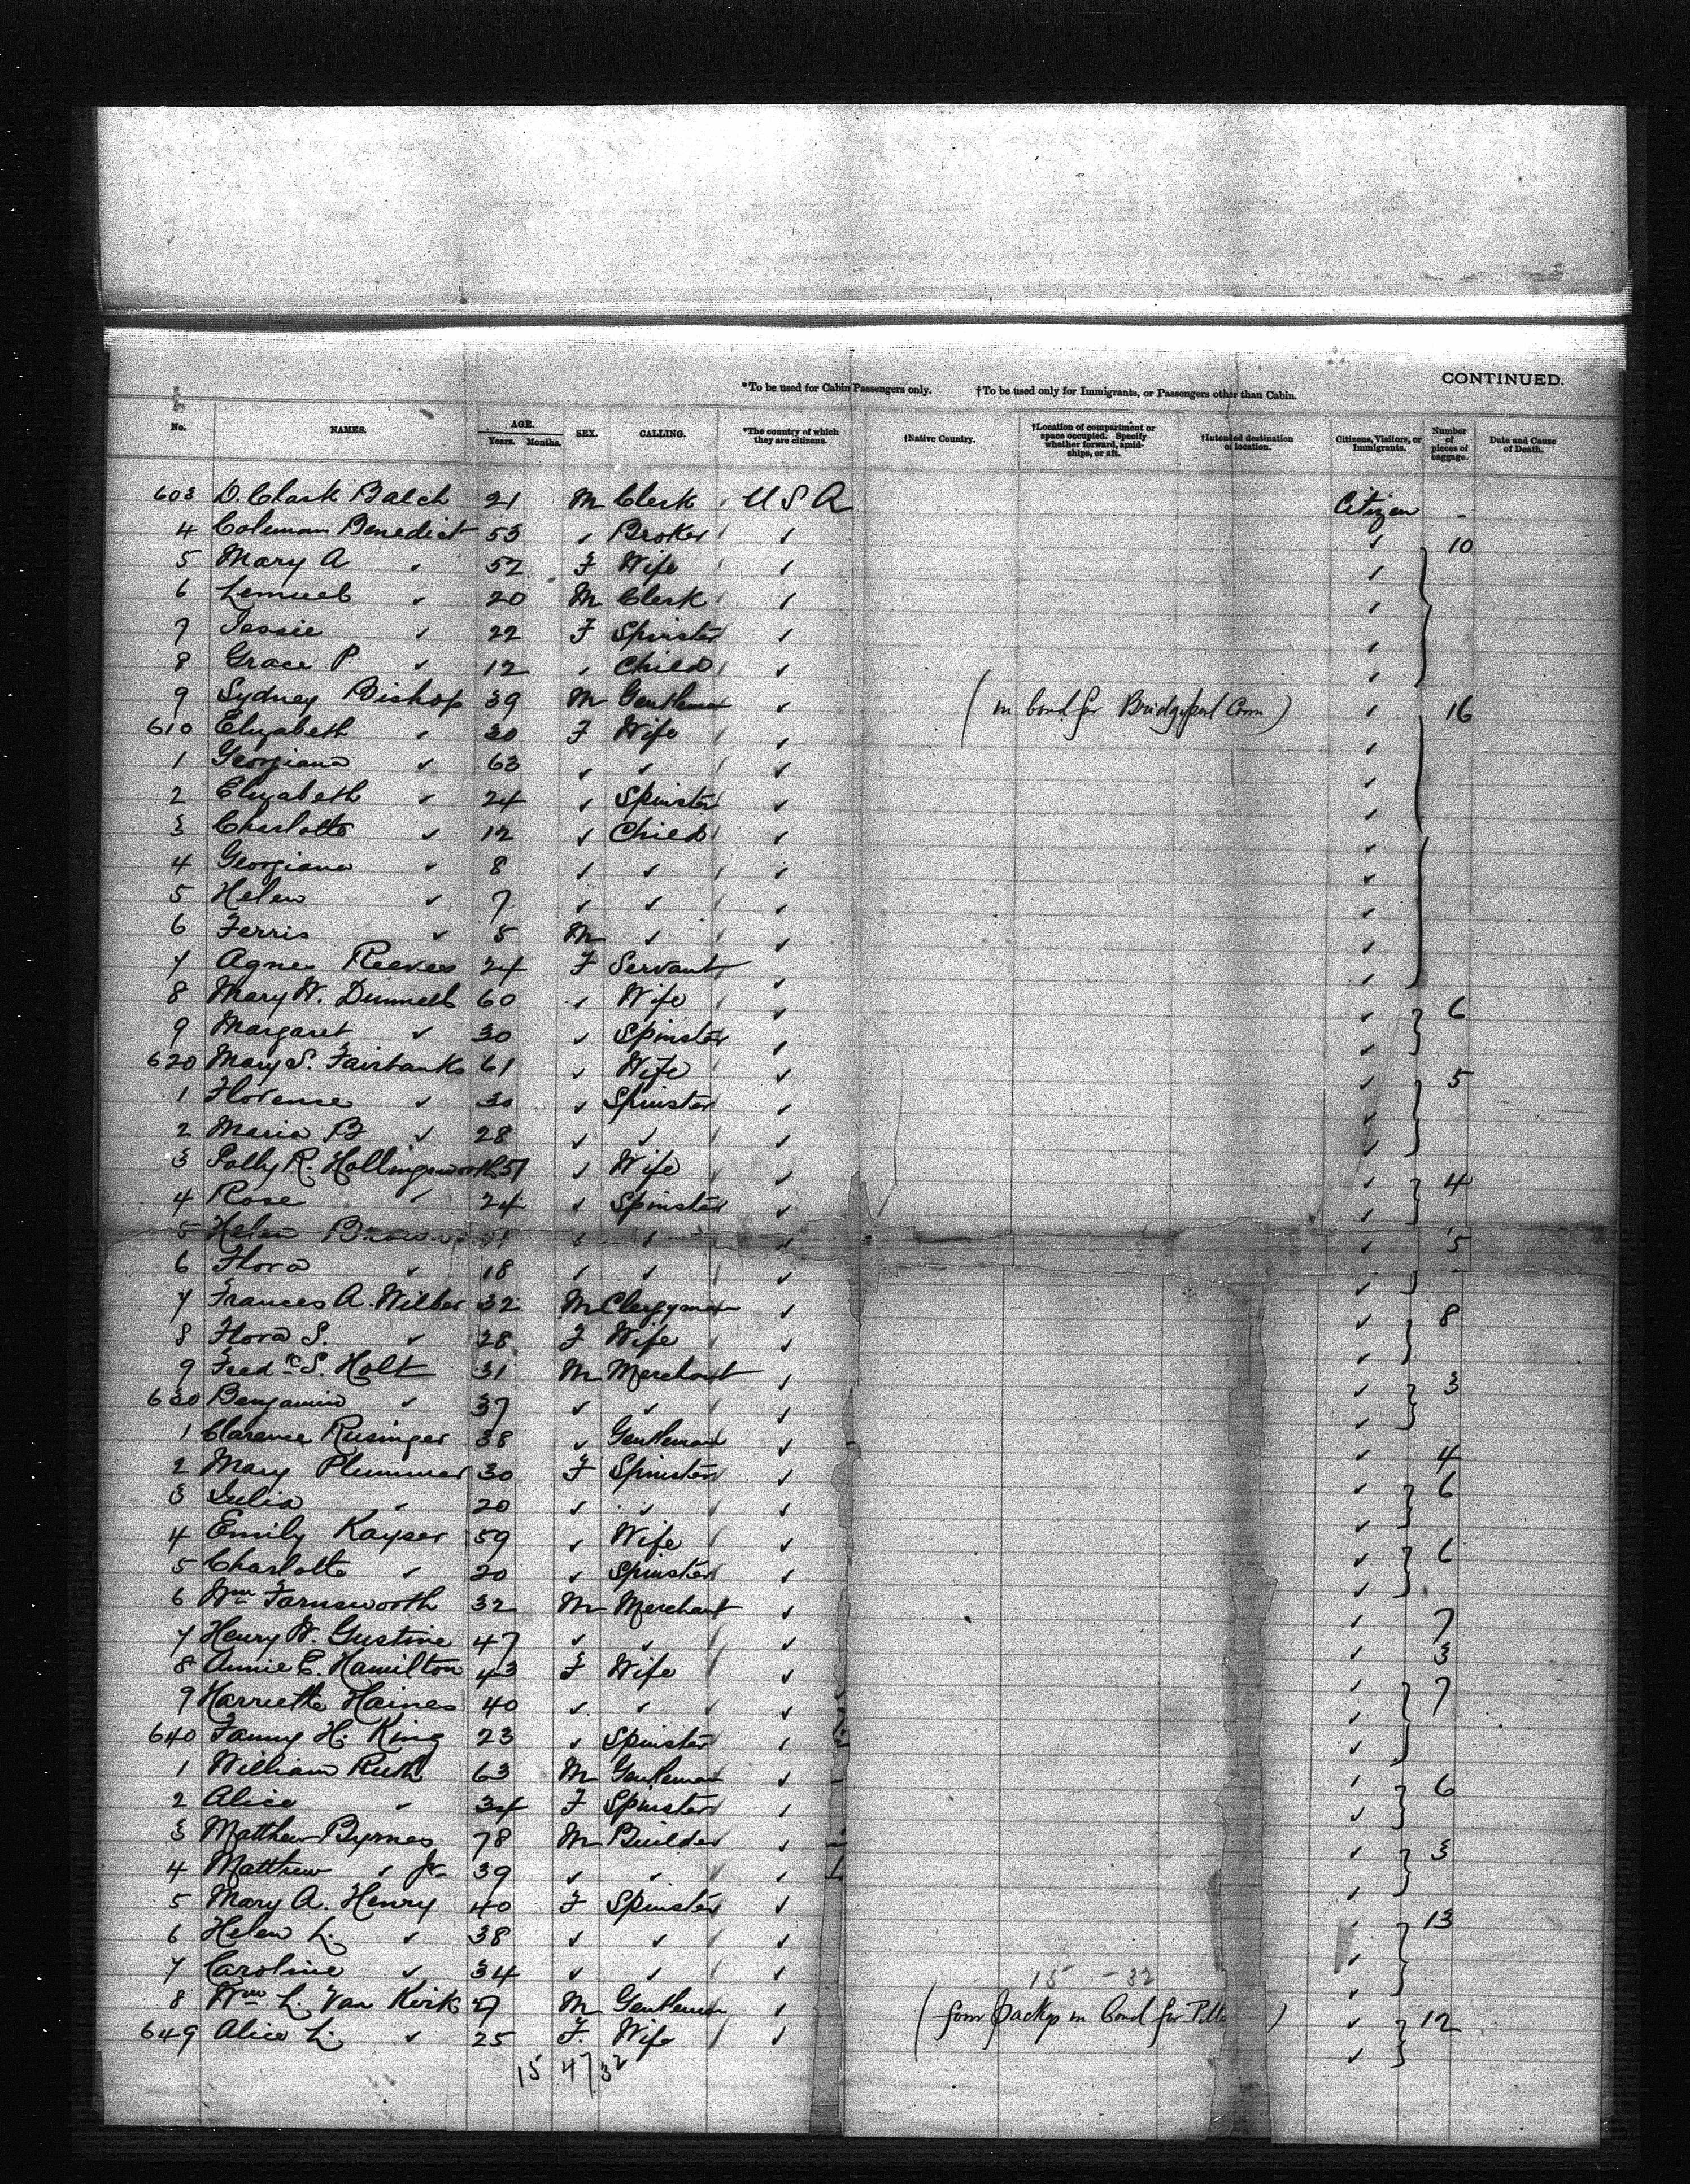 CONTINUED.
*To be used for Cabin Passengers only. †To be used only for Immigrants, or Passengers other than Cabin.
No. NAMES. AGE. Years. Months. SEX. CALLING. *The country of which they are citizens. †Native Country. †Location of compartment or space occupied. Specify whether forward, amidships, or aft. †Intended destination or location. Citizens, Visitors, or Immigrants. Number of pieces of baggage. Date and Cause of Death.
603 D. Clark Balch 21 M Clerk USA Citizen -
4 Coleman Benedict 53 ✓ Broker ✓ ✓ 10
5 Mary A ✓ 52 F Wife ✓ ✓
6 Lemuel ✓ 20 M Clerk ✓ ✓
7 Jessie ✓ 22 F Spinster ✓ ✓
8 Grace P ✓ 12 ✓ Child ✓ ✓
9 Sydney Bishop 39 M Gentleman ✓ (in bond for Bridgeport Conn) ✓ 16
610 Elizabeth ✓ 30 F Wife ✓ ✓
1 Georgiana ✓ 63 ✓ ✓ ✓ ✓
2 Elizabeth ✓ 24 ✓ Spinster ✓ ✓
3 Charlotte ✓ 12 ✓ Child ✓ ✓
4 Georgiana ✓ 8 ✓ ✓ ✓ ✓
5 Helen ✓ 7 ✓ ✓ ✓ ✓
6 Ferris ✓ 5 M ✓ ✓ ✓
7 Agnes Reeves 24 F Servant ✓ ✓
8 Mary W. Dunnell 60 ✓ Wife ✓ ✓ 6
9 Margaret ✓ 30 ✓ Spinster ✓ ✓
620 Mary S. Fairbanks 61 ✓ Wife ✓ ✓ 5
1 Florense ✓ 30 ✓ Spinster ✓ ✓
2 Maria B ✓ 28 ✓ ✓ ✓ ✓
3 Polly R. Hollingsworth 51 ✓ Wife ✓ ✓ 4
4 Rose ✓ 24 ✓ Spinster ✓ ✓
5 Helen Brown ✓ ✓ ✓ ✓ 5
6 Flora ✓ 18 ✓ ✓ ✓ ✓
7 Frances A. Wilber 32 M Clergyman ✓ ✓ 8
8 Flora S. ✓ 28 F Wife ✓ ✓
9 Fredᶜ S. Holt 31 M Merchant ✓ ✓ 3
630 Benjamin ✓ 37 ✓ ✓ ✓ ✓
1 Clarence Rusinger 38 ✓ Gentleman ✓ ✓ 4
2 Mary Plummer 30 F Spinster ✓ ✓ 6
3 Julia ✓ 20 ✓ ✓ ✓ ✓
4 Emily Kayser 59 ✓ Wife ✓ ✓ 6
5 Charlotte ✓ 20 ✓ Spinster ✓ ✓
6 Wm Farnsworth 32 M Merchant ✓ ✓ 7
7 Henry W. Gustine 47 ✓ ✓ ✓ ✓ 3
8 Annie E. Hamilton 43 F Wife ✓ ✓ 7
9 Harriette Haines 40 ✓ ✓ ✓ ✓
640 Fanny H. King 23 ✓ Spinster ✓ ✓
1 William Ruth 63 M Gentleman ✓ ✓ 6
2 Alice ✓ 34 F Spinster ✓ ✓
3 Matthew Byrnes 78 M Builder ✓ ✓ 3
4 Matthew ✓ Jr 39 ✓ ✓ ✓ ✓
5 Mary A. Henry 40 F Spinster ✓ ✓ 13
6 Helen L. ✓ 38 ✓ ✓ ✓ ✓
7 Caroline ✓ 34 ✓ ✓ ✓ 15 - 32 ✓
8 Wm L. Van Kirk 27 M Gentleman ✓ (four packgs in bond for ) ✓ 12
649 Alice L. ✓ 25 F. Wife ✓ ✓
15 47 32